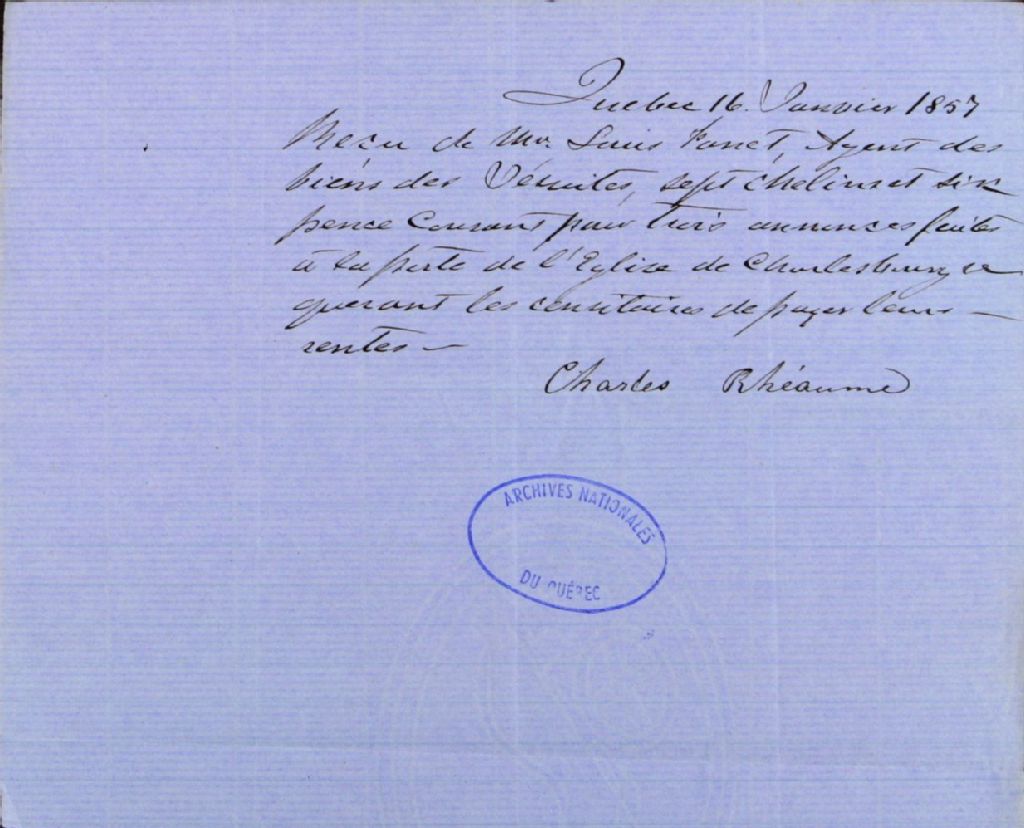 Quebec 16. Janvier 1857
Recu de Mr. Louis Panet, Agent des
biens des Jésuites, sept chelins et six
pence Courant pour trois annonces faites
à la porte de l'Eglise de Charlesbourg re
querant les censitaires de payer leurs —
rentes —
Charles Rhéaume
ARCHIVES NATIONALES
DU QUÉBEC